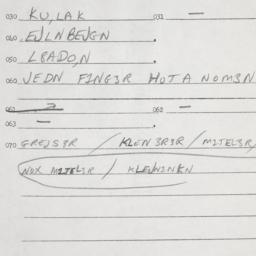 030 KU,LAK 031 —
040 EJLNBEJGN .
050 LBADO,N .
060 JEDN F1NG3R HOTA NOM3N
061 062 —
063 — .
070 GREJS3R / KLEN3R3R / M1TEL3R,
NOX M1TEL3R / KLEJN1NKN